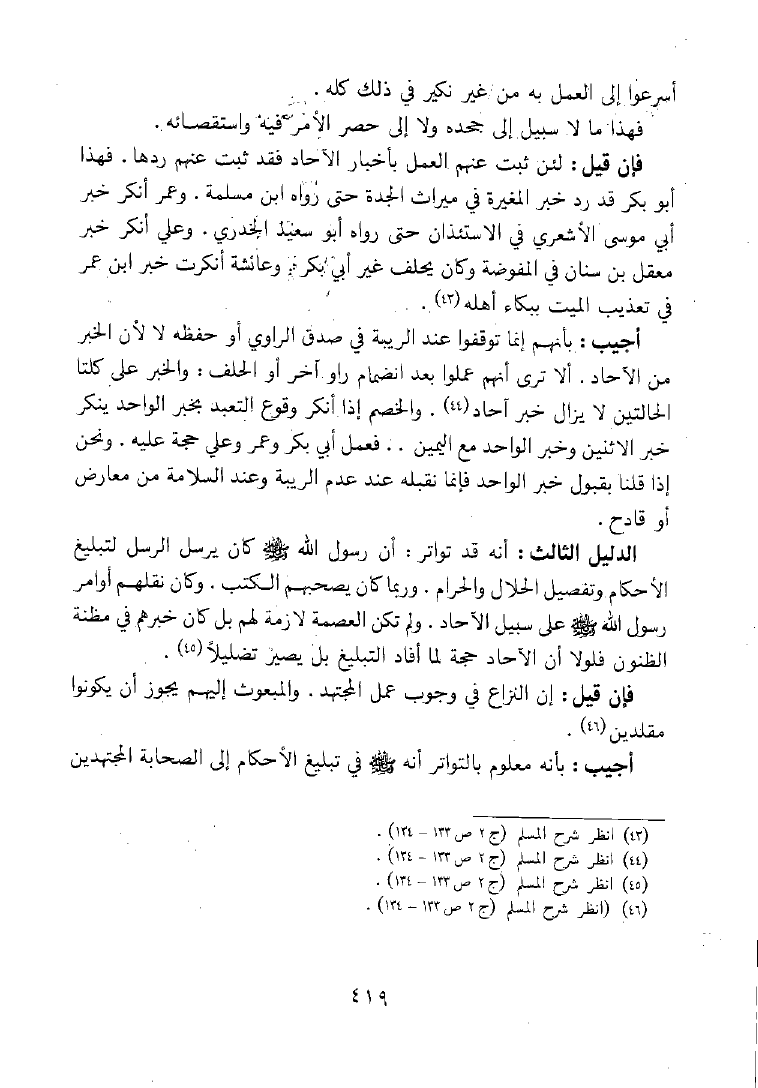 أسرعوا إلى العمل به من غير نكير في ذلك كله .
فهذا ما لا سبيل إلى جحده ولا إلى حصر الأمر فيه واستقصائه .
فإن قيل : لئن ثبت عنهم العمل بأخبار الآحاد فقد ثبت عنهم ردها . فهذا
أبو بكر قد رد خبر المغيرة في ميراث الجدة حتى رواه ابن مسلمة . وعمر أنكر خبر
أبي موسى الأشعري في الاستئذان حتى رواه أبو سعيد الخدري . وعلي أنكر خبر
معقل بن سنان في المفوضة وكان يحلف غير أبي بكر . وعائشة أنكرت خبر ابن عمر
في تعذيب الميت ببكاء أهله (٤٣) .
أجيب : بأنهم إنما توقفوا عند الريبة في صدق الراوي أو حفظه لا لأن الخبر
من الآحاد . ألا ترى أنهم عملوا بعد انضمام راو آخر أو الحلف : والخبر على كلتا
الحالتين لا يزال خبر آحاد (٤٤) . والخصم إذا أنكر وقوع التعبد بخبر الواحد ينكر
خبر الاثنين وخبر الواحد مع اليمين . . فعمل أبي بكر وعمر وعلي حجة عليه . ونحن
إذا قلنا بقبول خبر الواحد فإنما نقبله عند عدم الريبة وعند السلامة من معارض
أو قادح .
الدليل الثالث : أنه قد تواتر : أن رسول الله ﷺ كان يرسل الرسل لتبليغ
الأحكام وتفصيل الحلال والحرام . وربما كان يصحبهم الكتب . وكان نقلهم أوامر
رسول الله ﷺ على سبيل الآحاد . ولم تكن العصمة لازمة لهم بل كان خبرهم في مظنة
الظنون فلولا أن الآحاد حجة لما أفاد التبليغ بل يصير تضليلاً (٤٥) .
فإن قيل : إن النزاع في وجوب عمل المجتهد . والمبعوث إليهم يجوز أن يكونوا
مقلدين (٤٦) .
أجيب : بأنه معلوم بالتواتر أنه ﷺ في تبليغ الأحكام إلى الصحابة المجتهدين
(٤٣) انظر شرح المسلم (ج ٢ ص ١٣٣ – ١٣٤) .
(٤٤) انظر شرح المسلم (ج ٢ ص ١٣٣ – ١٣٤) .
(٤٥) انظر شرح المسلم (ج ٢ ص ١٣٣ – ١٣٤) .
(٤٦) (انظر شرح المسلم (ج ٢ ص ١٣٣ – ١٣٤) .
٤١٩